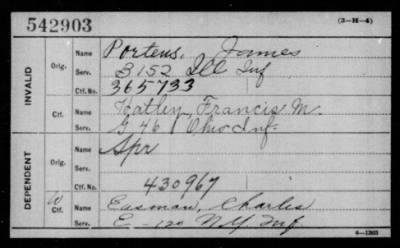 542903
(3-H-4)
INVALID
Orig.
Name Porteus, James
Serv. B 152 Ill Inf
Ctf. No. 365733
Ctf.
Name Hatley, Francis M.
Serv. G 46 Ohio Inf.
DEPENDENT
Orig.
Name Apr
Serv.
Ctf. No. 430967
W Ctf.
Name Easman, Charles
Serv. E - 120 N.Y. Inf
6-1263